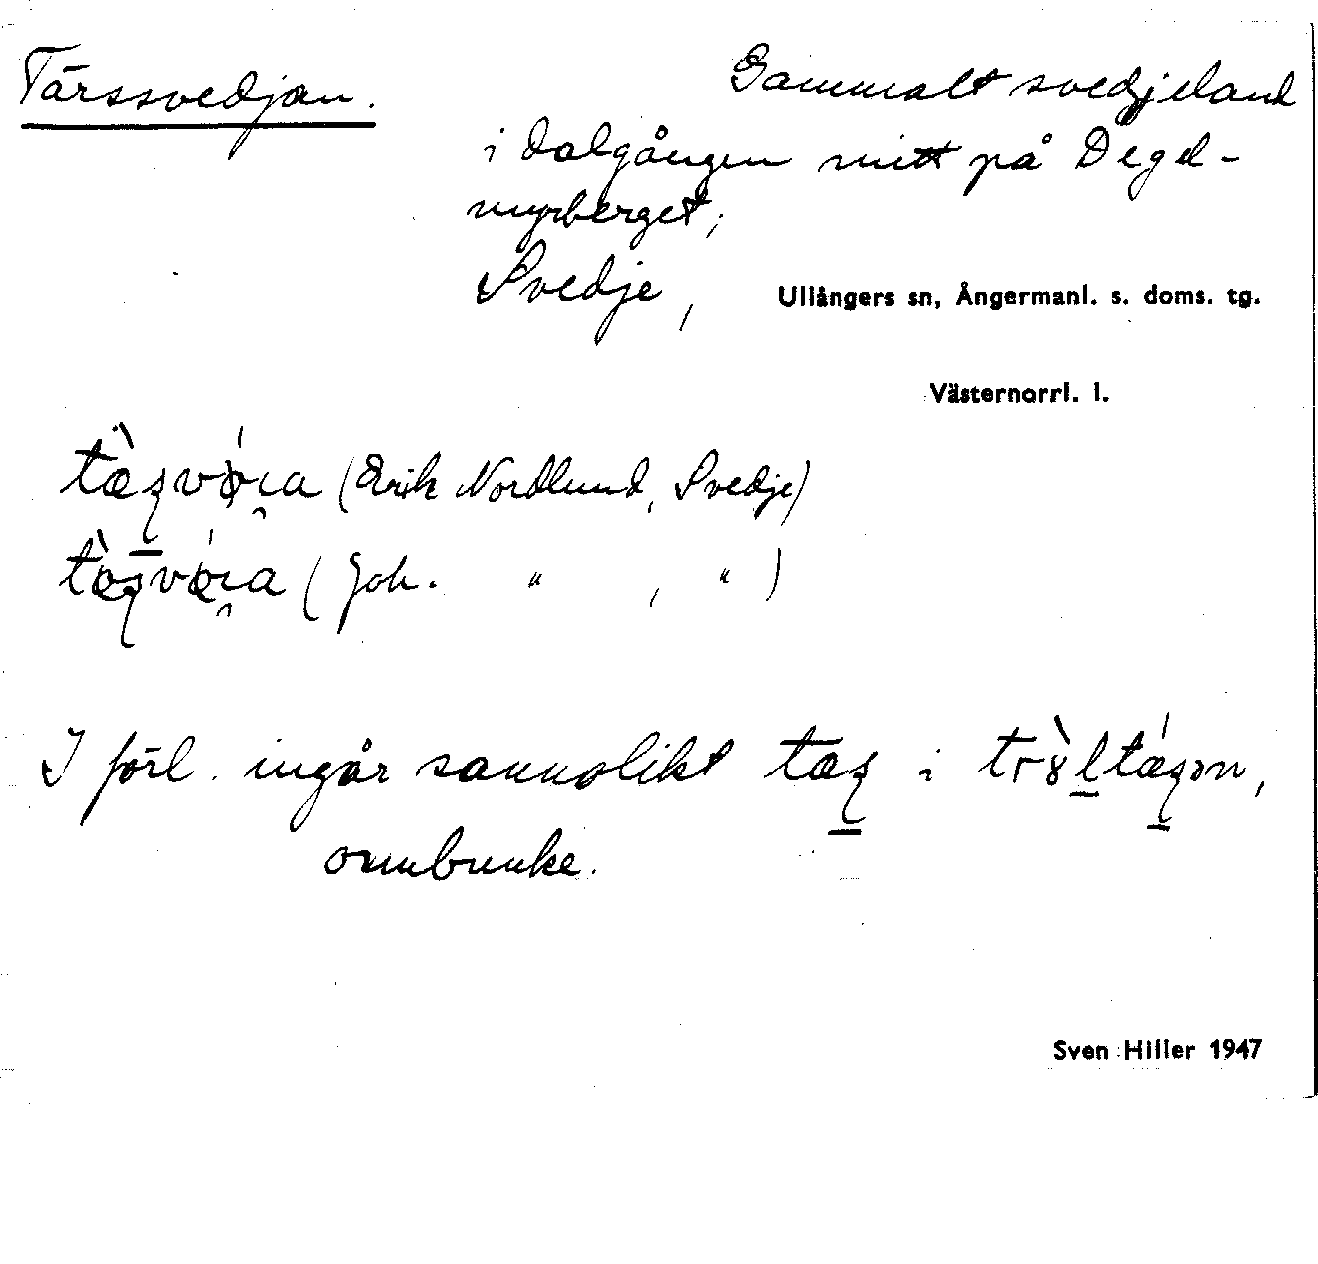 Tärssvedjan.
Gammalt svedjeland
i dalgången mitt på Degel-
myrberget;
Svedje,
Ullångers sn, Ångermanl. s. doms. tg.
Västernorrl. l.
(Erik Nordlund, Svedje)
(Joh. " , " )
I förl. ingår sannolikt tæʂ i
ormbunke.
Sven Hiller 1947